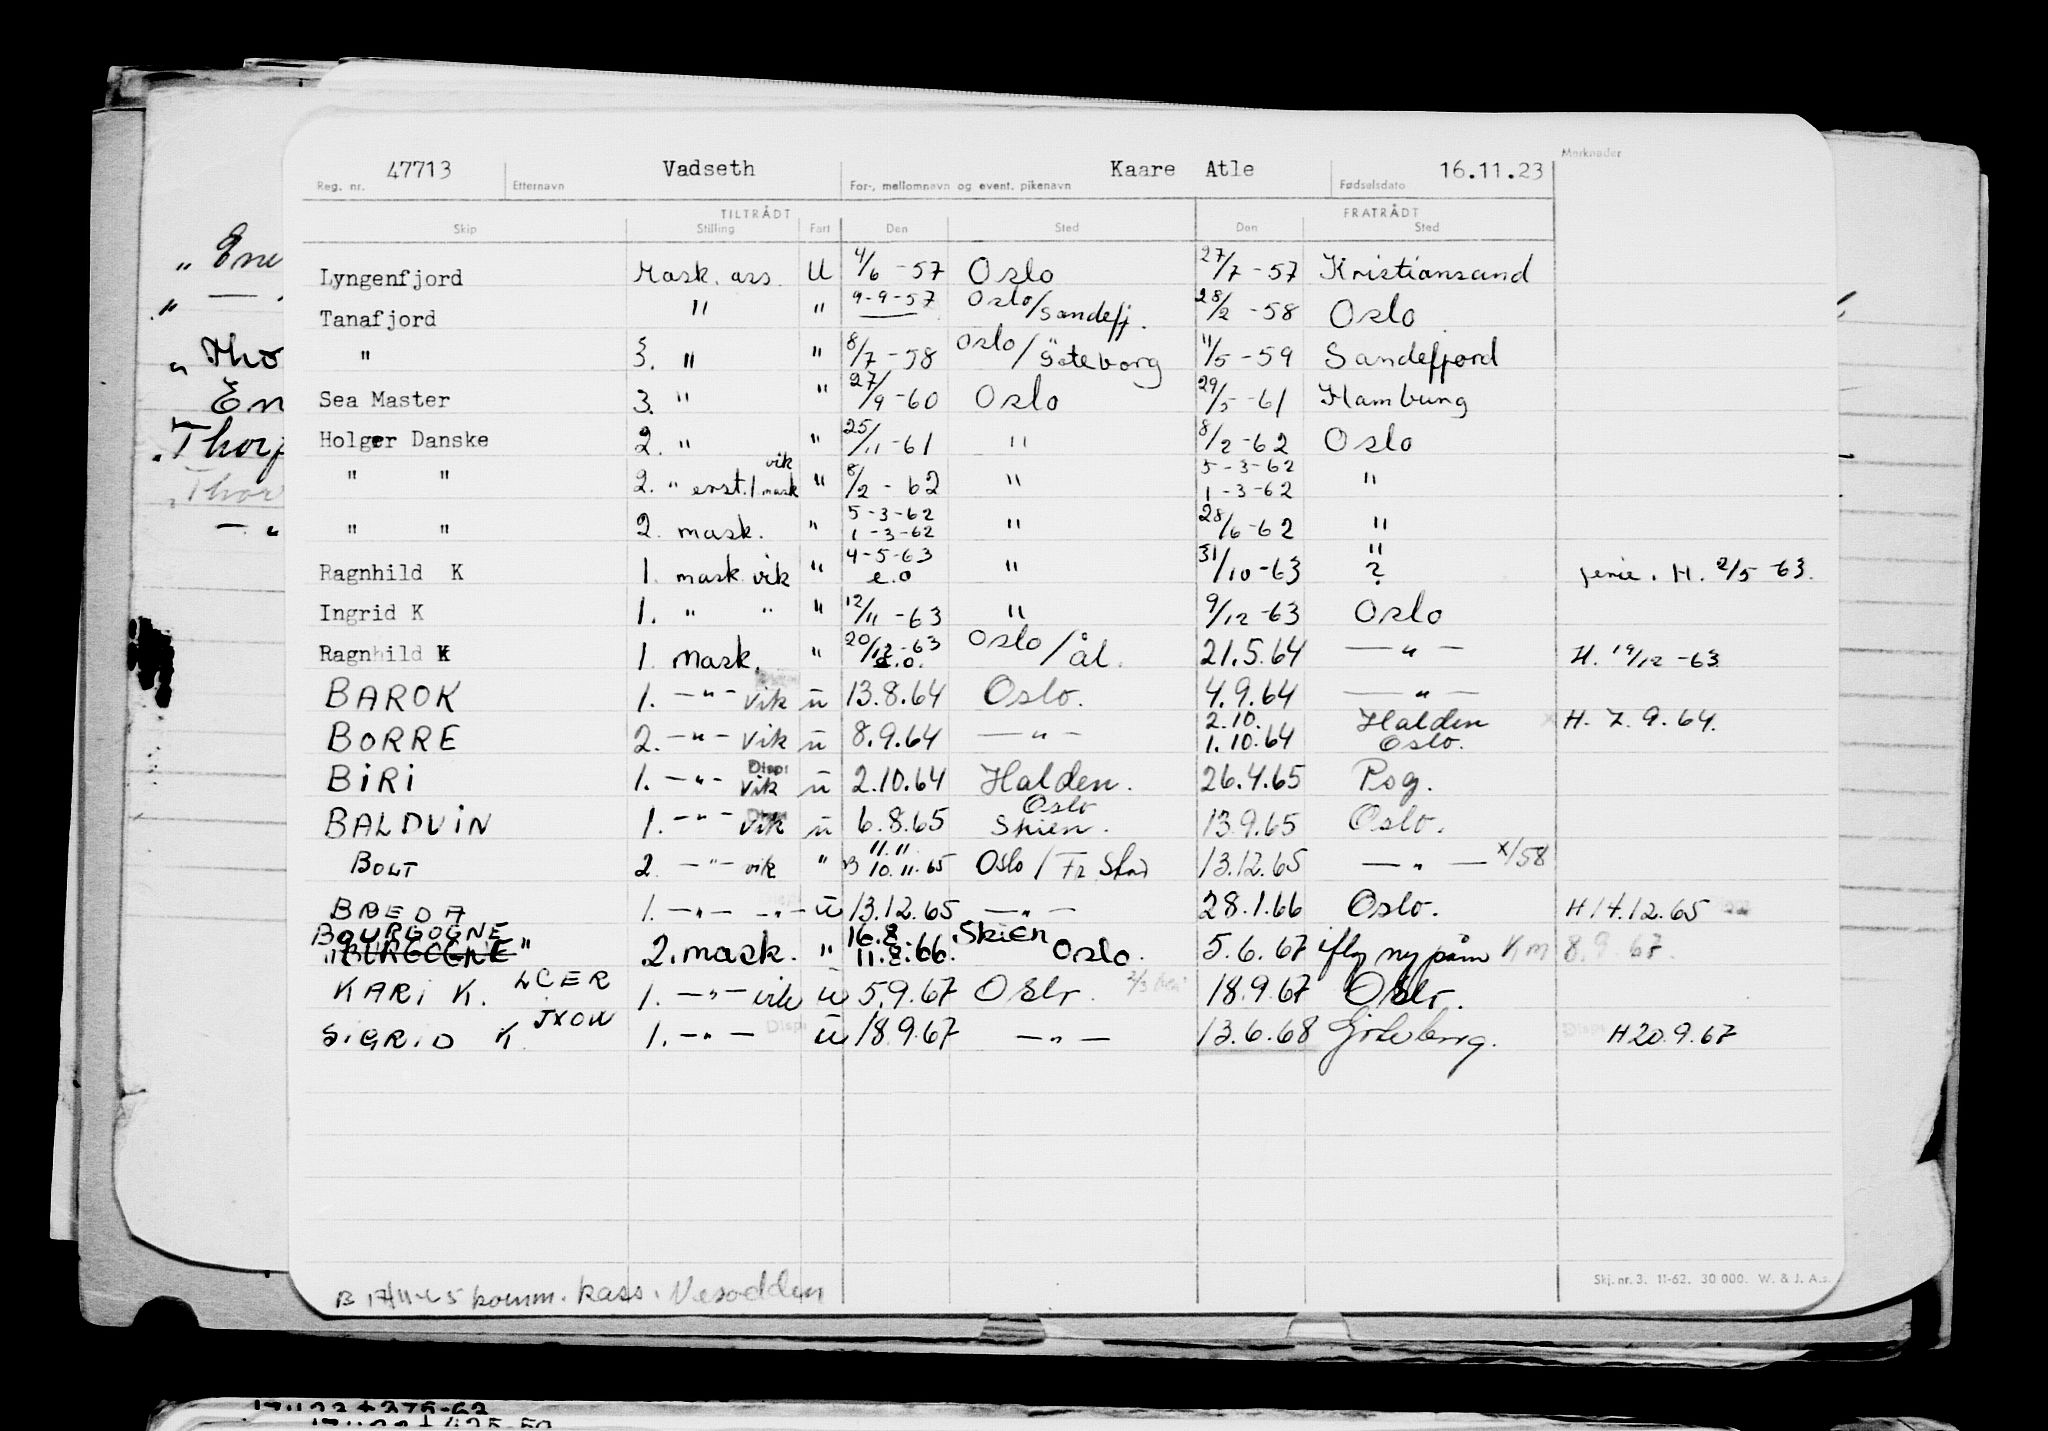 47713 Vadseth Kaare Atle 16.11.23 Merknader
Reg. nr. Etternavn For-, mellomnavn og event. pikenavn Fødselsdato
TILTRÅDT FRATRÅDT
Skip Stilling Fart Den Sted Den Sted
Lyngenfjord Mask. ass. U 4/6 -57 Oslo 27/7 -57 Kristiansand
Tanafjord " " 9-9-57 Oslo/Sandefj. 28/2 -58 Oslo
" 3. " " 8/7 -58 Oslo/Göteborg 11/5 -59 Sandefjord
Sea Master 3. " " 27/9 -60 Oslo 29/5 -61 Hamburg
Holger Danske 2. " " 25/11 -61 " 8/2 -62 Oslo
" " 2. " erst./mask vik " 8/2 - 62 " 5-3-62 1-3-62 "
" " 2. mask. " 5-3-62 1-3-62 " 28/6 -62 "
Ragnhild K 1. mask. vik " 4-5-63 e.o " 31/10 -63 " ? ferie. H. 2/5 -63.
Ingrid K 1. " " " 12/11 -63 " 9/12 -63 Oslo
Ragnhild K 1. Mask. " 20/12 -63 e.o. Oslo/Ål. 21.5.64 — " — H. 19/12 -63
BAROK 1. — " — vik u 13.8.64 Oslo. 4.9.64 — " —
BORRE 2. — " — vik u 8.9.64 — " — 2.10. 1.10.64 Halden Oslo. H. 7.9.64.
BiRi 1. — " — Disp vik u 2.10.64 Halden. 26.4.65 Psg.
BALDUiN 1. — " — vik u 6.8.65 Oslo Skien. 13.9.65 Oslo.
BOLT 2 — " — vik " B 11.11 10.11.65 Oslo / Fr. Stad 13.12.65 — " — x/58
BREDA 1. — " — — " — u 13.12.65 — " — 28.1.66 Oslo. H 14.12.65
BOURGOGNE
" 2. mask. " 16.8. 11.8.66. Skien Oslo. 5.6.67 ifly ny påm Km 8.9.67.
KARi K. LCER 1. — " — vik u 5.9.67 Oslo 18.9.67 Oslo.
SiGRiD K. JXOW 1. — " — Disp u 18.9.67 — " — 13.6.68 Göteborg. H 20.9.67
Skj. nr. 3. 11-62. 30 000. W. & J. A.s.
B 17/11-65 komm. kass. Nesodden
„ Ene
„ Tho
En
Thorf
Thor